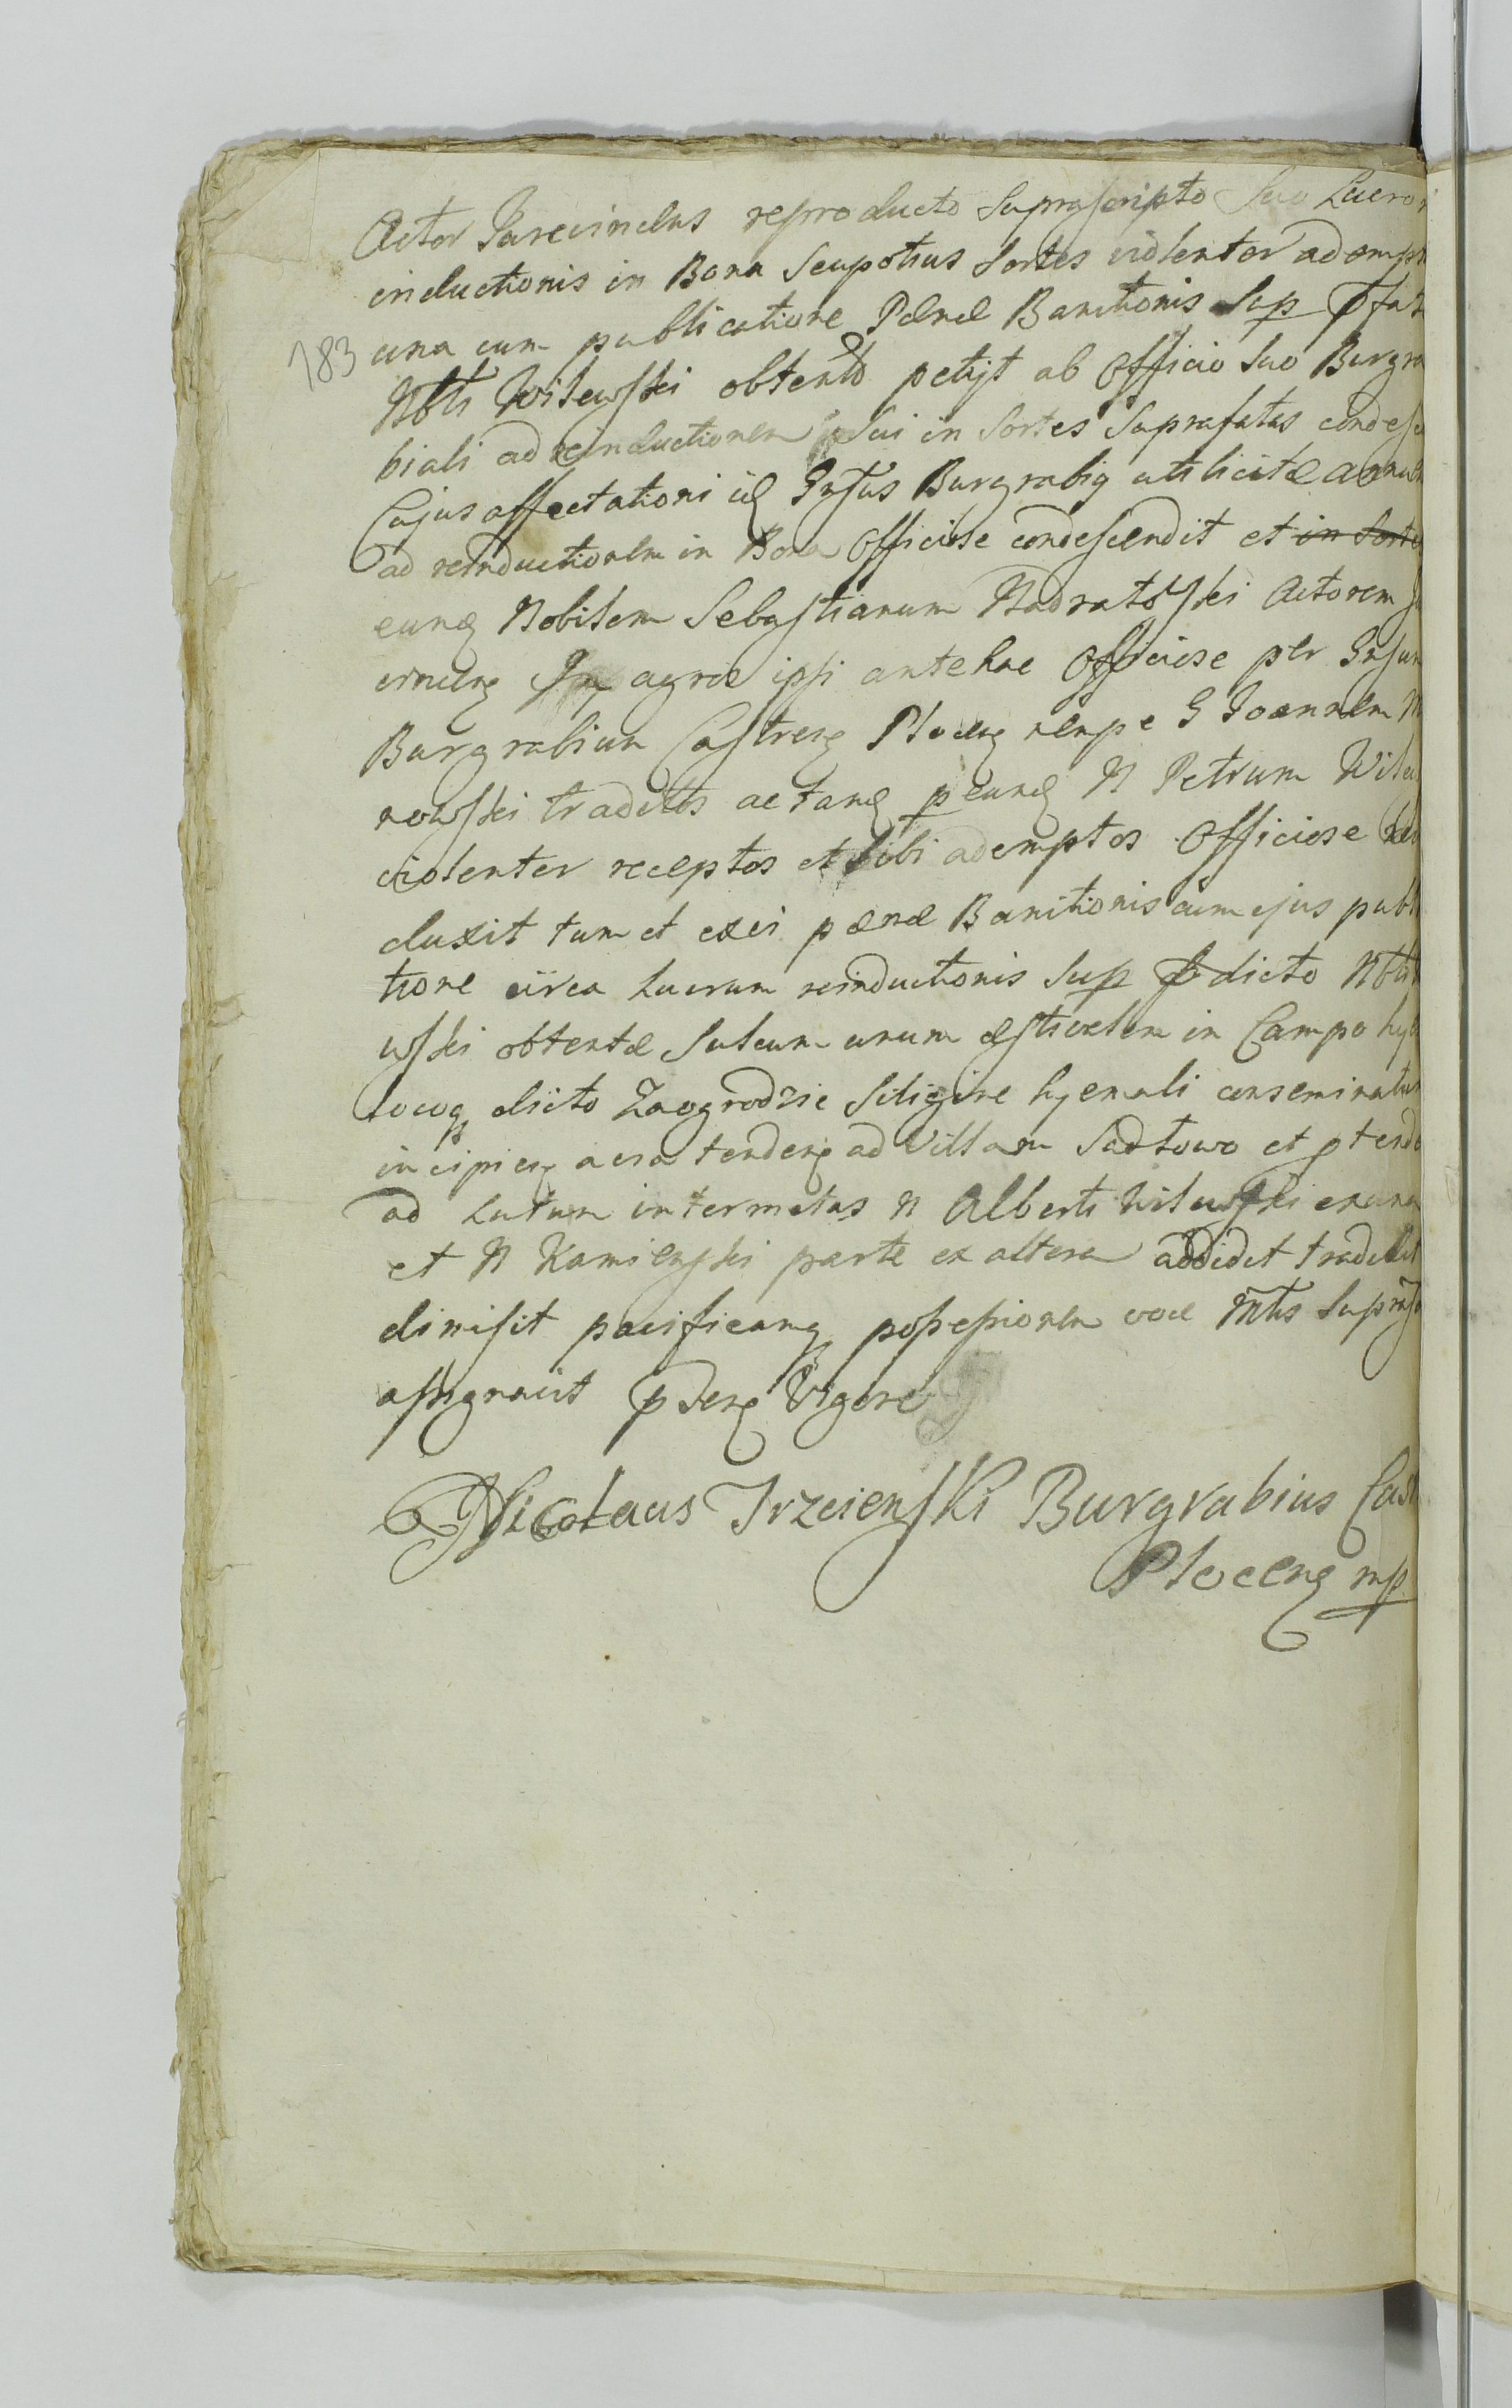 Actor Jurevinctus reproducto suprascripto suo Lucro
inductionis in Bona seu potius Sortes violenter adempt
183 una cum publicatione Pænæ Banitionis sup pfat
Nbli Wilewski obtento petijt ab Officio suo Burgra
biali ad reinductionem sui in Sortes suprafatas condesc
Cujus affectationi id Infus Burgrabig uti licitæ annue
ad reinductionem in Bona Officiose condescendit et in Sortes
eundq Nobilem Sebastianum Nadratowski Actorem
agros ipsi antehac Officiose per Insum
Burgrabium Castreng Ploceng nempe G Joannem
nowski traditos ac tanq p eundq N Petrum Wilew
violenter receptos et sibi ademptos Officiose
duxit tum et ex vi pænæ Banitionis cum ejus publ
tione circa Lucrum reinductionis sup pdicto Nbli
wski obtentæ sulcum unum æstivalem in Campo hy
locoq dicto Zaogrodzie siligine hyemali conseminatum
incipieng a via tendeng ad Villam Sadłowo et ptend
ad Lutum inter metas N Alberti Wilewski ex una
et N Kamienski parte ex altera addidit tradidit
dimisit pacificamq possessionem voce Mtis supra
assignavit pdeng Vigore
Nicolaus Trzcienski Burgrabius Cast
Ploceng mp